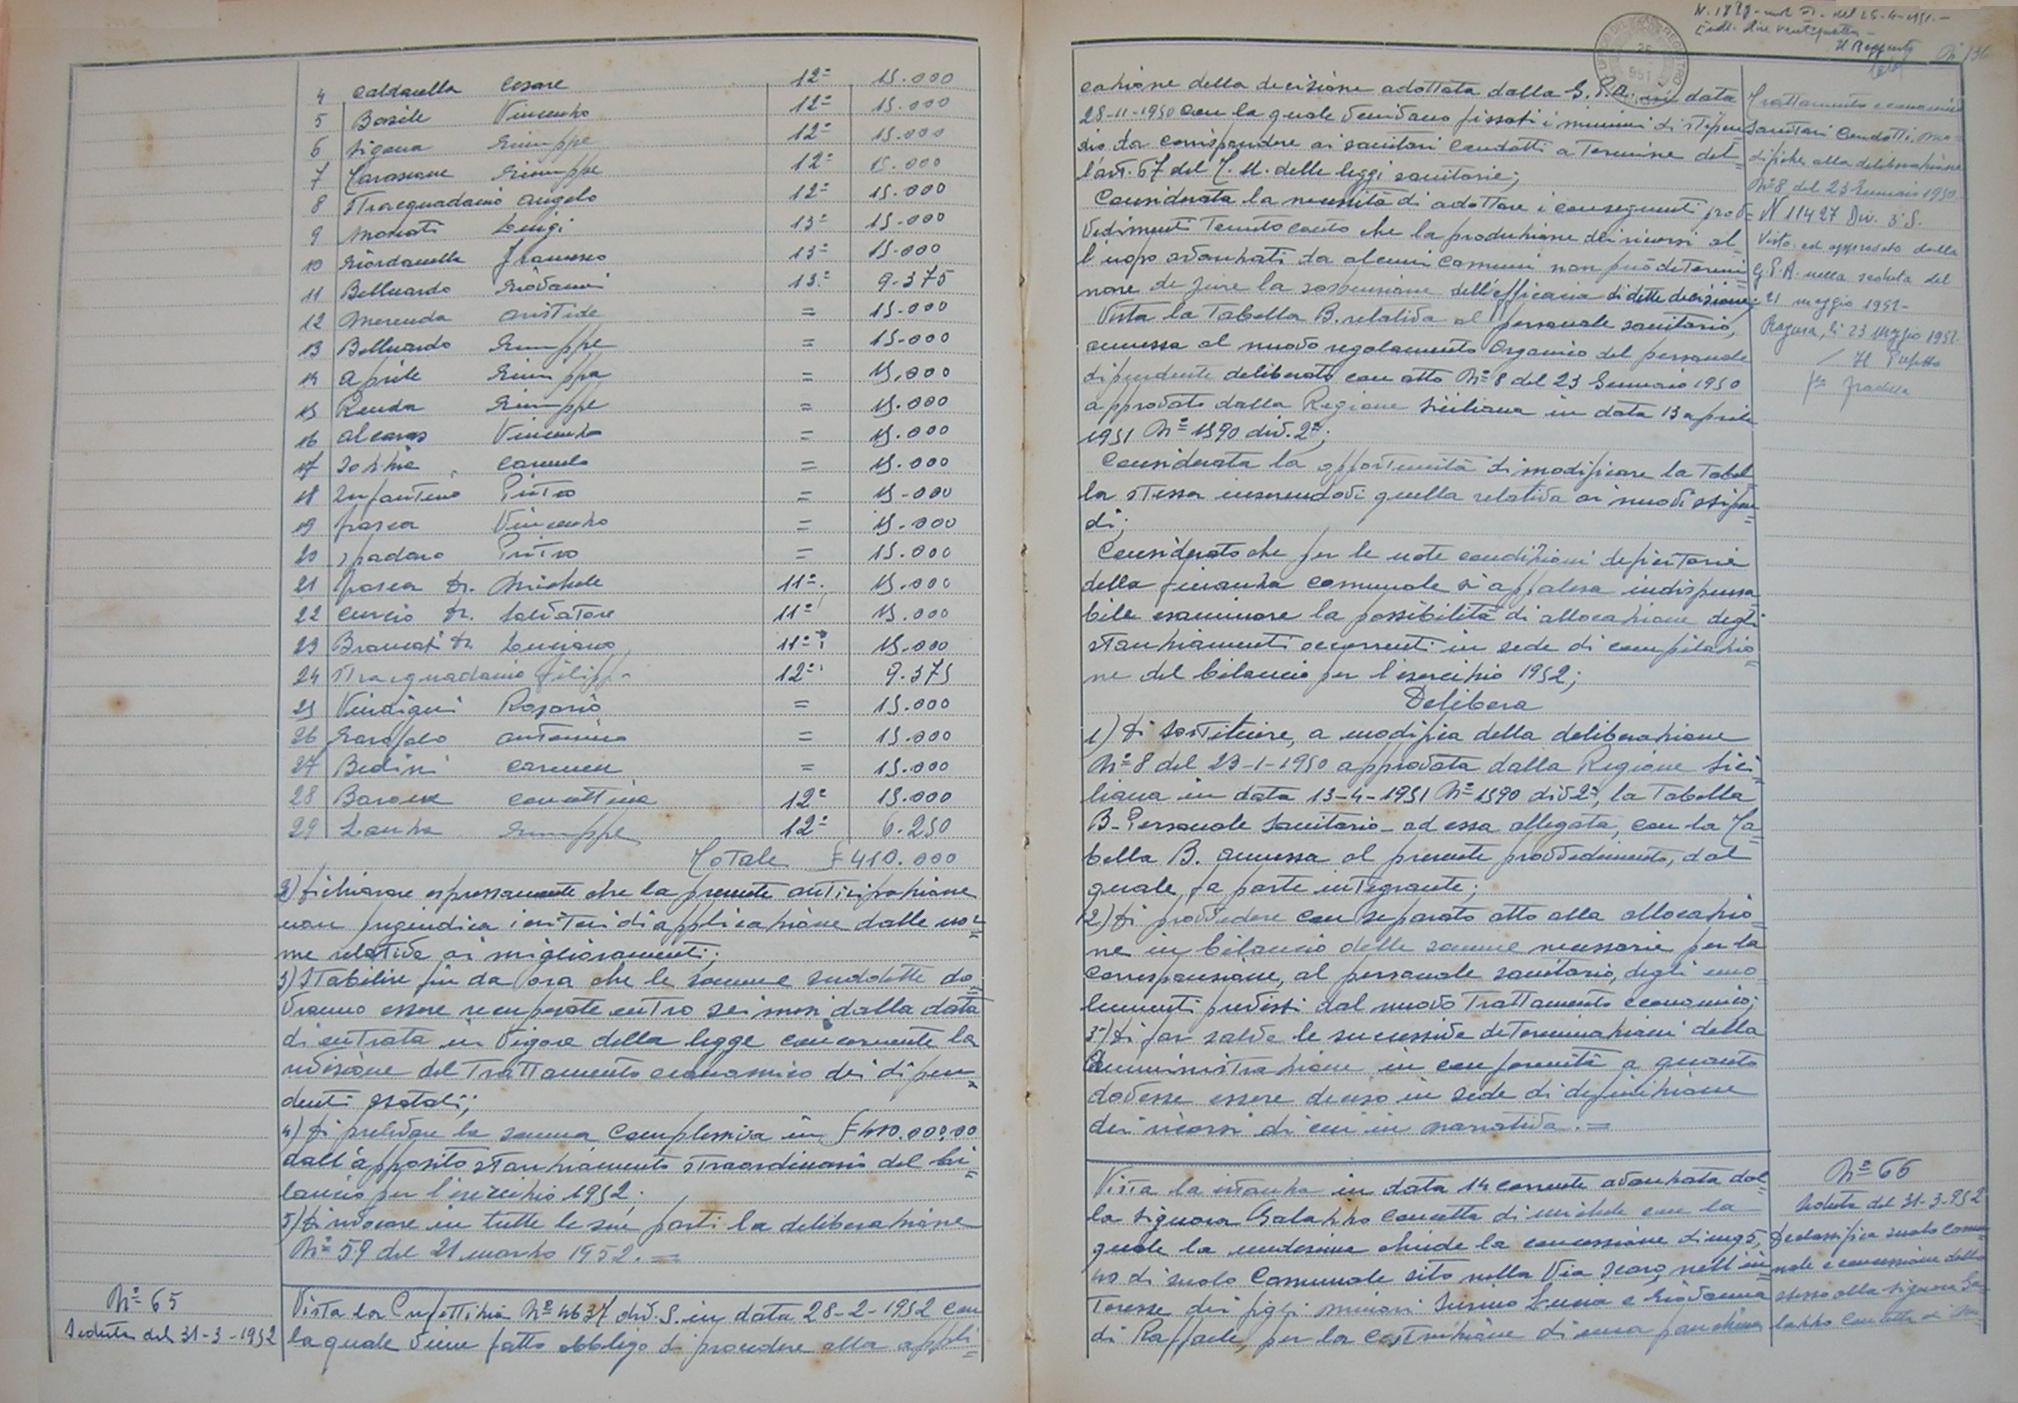 4 Caldarella Cesare 12° 15.000
5 Basile Vincenzo 12° 15.000
6 Sigona Giuseppe 12° 15.000
7 Giuseppe 12° 15.000
8 Stracquadaino Angelo 12° 15.000
9 Luigi 13° 15.000
10 Giordanella Francesco 13° 15.000
11 Belluardo Giovanni 13° 9.375
12 Merenda Aristide = 15.000
13 Belluardo Giuseppe = 15.000
14 Aprile Giuseppa = 15.000
15 Renda Giuseppe = 15.000
16 Vincenzo = 15.000
17 Carmelo = 15.000
18 Infantino Pietro = 15.000
19 Vincenzo = 15.000
20 Spadaro Pietro = 15.000
21 Dr. Michele 11° 15.000
22 Curcio Dr. Salvatore 11° 15.000
23 Brancati Dr. Luciano 11° 15.000
24 Stracquadaino Filippo 12° 9.375
25 Vindigni Rosario = 15.000
26 Garofalo Antonino = 15.000
27 Bedini Carmen = 15.000
28 Barone Concettina 12° 15.000
29 Giuseppe 12° 6.250
Totale £ 410.000
2) Dichiarare espressamente che la presente anticipazione
non pregiudica i criteri di applicazione delle nor=
me relative ai miglioramenti;
3) Stabilire fin da ora che le somme suddette do=
vranno essere recuperate entro sei mesi dalla data
di entrata in vigore della legge concernente la
revisione del trattamento economico dei dipen=
denti statali;
4) Di prelevare la somma complessiva in £ 410.000,00
dall'apposito stanziamento straordinario del bi=
lancio per l'esercizio 1952;
5) Di revocare in tutte le sue parti la deliberazione
N° 59 del 21 marzo 1952. =
N° 65
Seduta del 31-3-1952
Vista la Prefettizia N° 4637 div. S. in data 28-2-1952 con
la quale viene fatto obbligo di procedere alla appli=
cazione della decisione adottata dalla G.P.A. in data
28-11-1950 con la quale venivano fissati i minimi di stipen=
dio da corrispondere ai sanitari condotti a termine del=
l'art. 67 del T. U. delle leggi sanitarie;
Considerata la necessità di adottare i conseguenti prov=
vedimenti tenuto conto che la produzione dei ricorsi al=
l'uopo avanzati da alcuni comuni non può determi=
nare de jure la sospensione dell'efficacia di dette decisione;
Vista la Tabella B. relativa al personale sanitario,
annessa al nuovo regolamento Organico del personale
dipendente deliberato con atto N° 8 del 23 Gennaio 1950
approvato dalla Regione Siciliana in data 13 aprile
1951 N° 1590 div. 2ª;
Considerata la opportunità di modificare la tabel=
la stessa inserendovi quella relativa ai nuovi stipen=
di;
Considerato che per le note condizioni deficitarie
della finanza comunale si appalesa indispensa=
bile esaminare la possibilità di allocazione degli
stanziamenti occorrenti in sede di compilazio=
ne del bilancio per l'esercizio 1952;
Delibera
1) Di sostituire, a modifica della deliberazione
N° 8 del 23-1-1950 approvata dalla Regione Sici=
liana in data 13-4-1951 N° 1590 div 2ª, la Tabella
B - Personale Sanitario - ad essa allegata, con la Ta=
bella B. annessa al presente provvedimento, del
quale fa parte integrante;
2) Di provvedere con separato atto alla allocazio=
ne in bilancio delle somme necessarie per la
corresponsione, al personale sanitario, degli emo=
lumenti previsti dal nuovo trattamento economico;
3°) Di far salve le successive determinazioni della
Amministrazione in conformità a quanto
dovesse essere deciso in sede di definizione
dei ricorsi di cui in narrativa. =
Vista la istanza in data 14 corrente avanzata dal=
la signora Galazzo Concetta di Michele con la
quale la medesima chiede la concessione di mq 5,
40 di suolo Comunale sito nella Via nell'in=
teresse dei figli minori e Giovanna
di Raffaele, per la costruzione di una
Trattamento economico
Sanitari Condotti, mo=
difiche alla deliberazione
N° 8 del 23 Gennaio 1950
N 11427 Div. 3ª S.
Visto ed approvato dalla
G.P.A. nella seduta del
21 maggio 1952-
Ragusa, lì 23 maggio 1952
Il Prefetto
N° 66
Seduta del 31-3-952
Declassifica suolo comu=
nale e concessione dello
stesso alla signora Ga=
lazzo Concetta